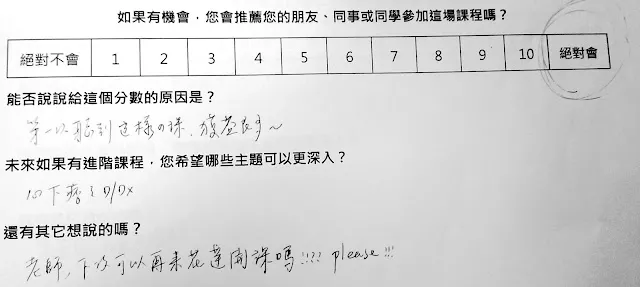 如果有機會，您會推薦您的朋友、同事或同學參加這場課程嗎？
絕對不會 1 2 3 4 5 6 7 8 9 10 絕對會
能否說說給這個分數的原因是？
第一次 到這樣の課，獲益良多～
未來如果有進階課程，您希望哪些主題可以更深入？
還有其它想說的嗎？
老師，下次可以再來花蓮開課嗎!!?? please!!!